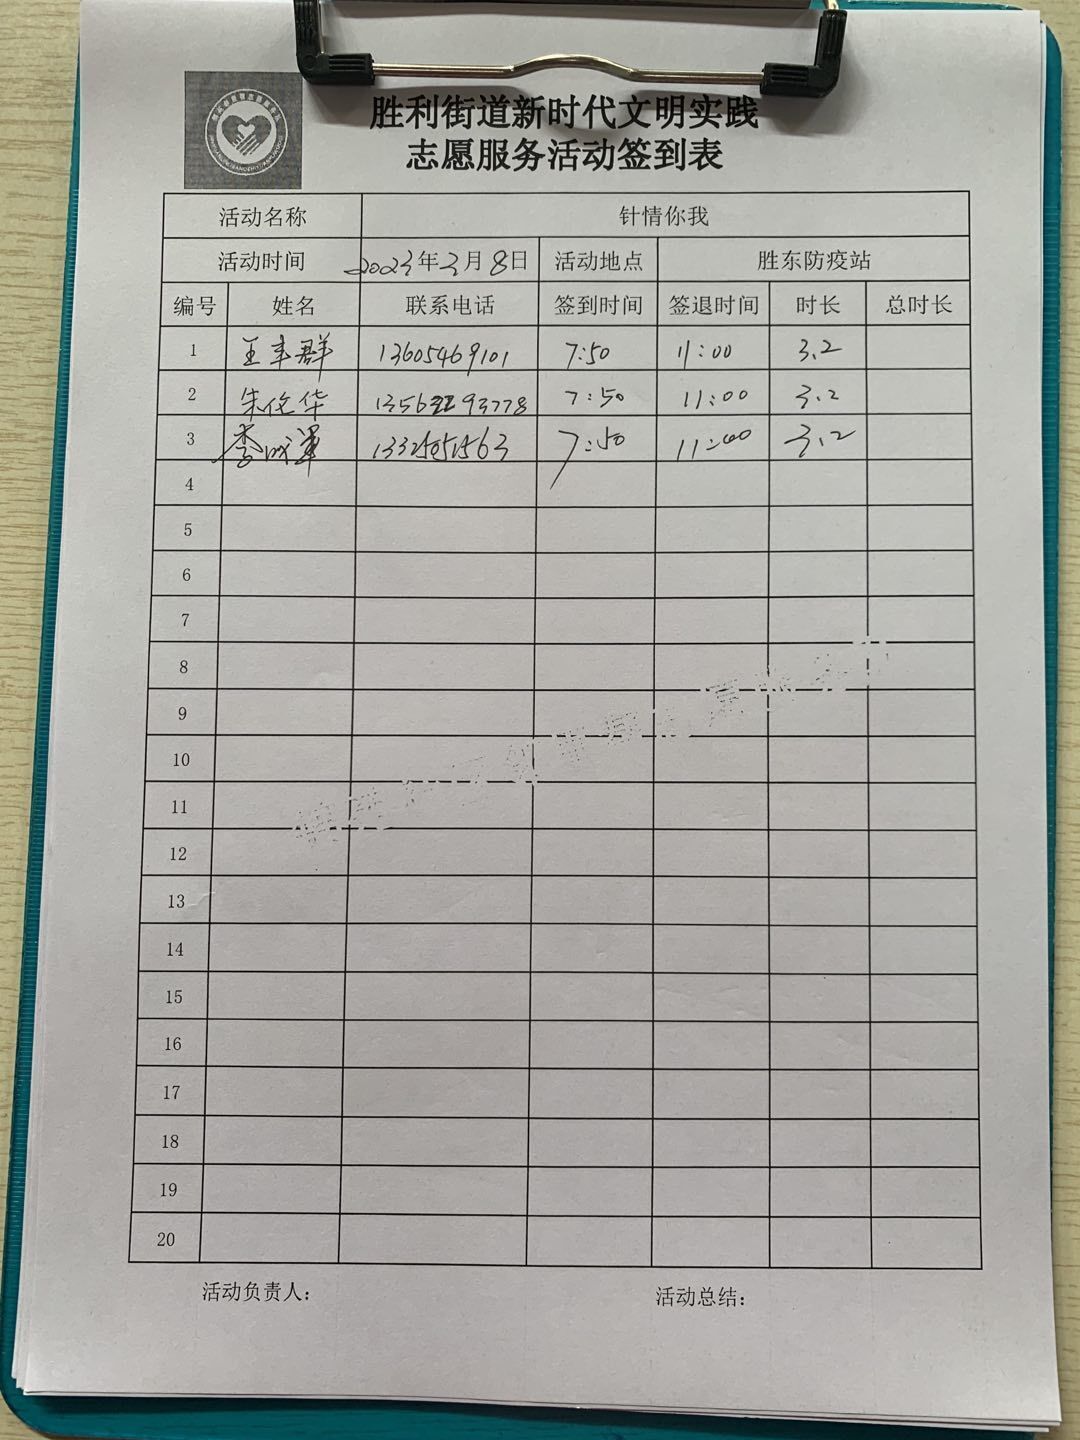 胜利街道新时代文明实践
志愿服务活动签到表
活动名称 针情你我
活动时间 2023年3月8日 活动地点 胜东防疫站
编号 姓名 联系电话 签到时间 签退时间 时长 总时长
1 王丰群 13605469101 7:50 11:00 3.2
2 朱伦华 7:50 11:00 3.2
3 李成军 7:50 11:00 3.2
4
5
6
7
8
9
10
11
12
13
14
15
16
17
18
19
20
活动负责人： 活动总结：